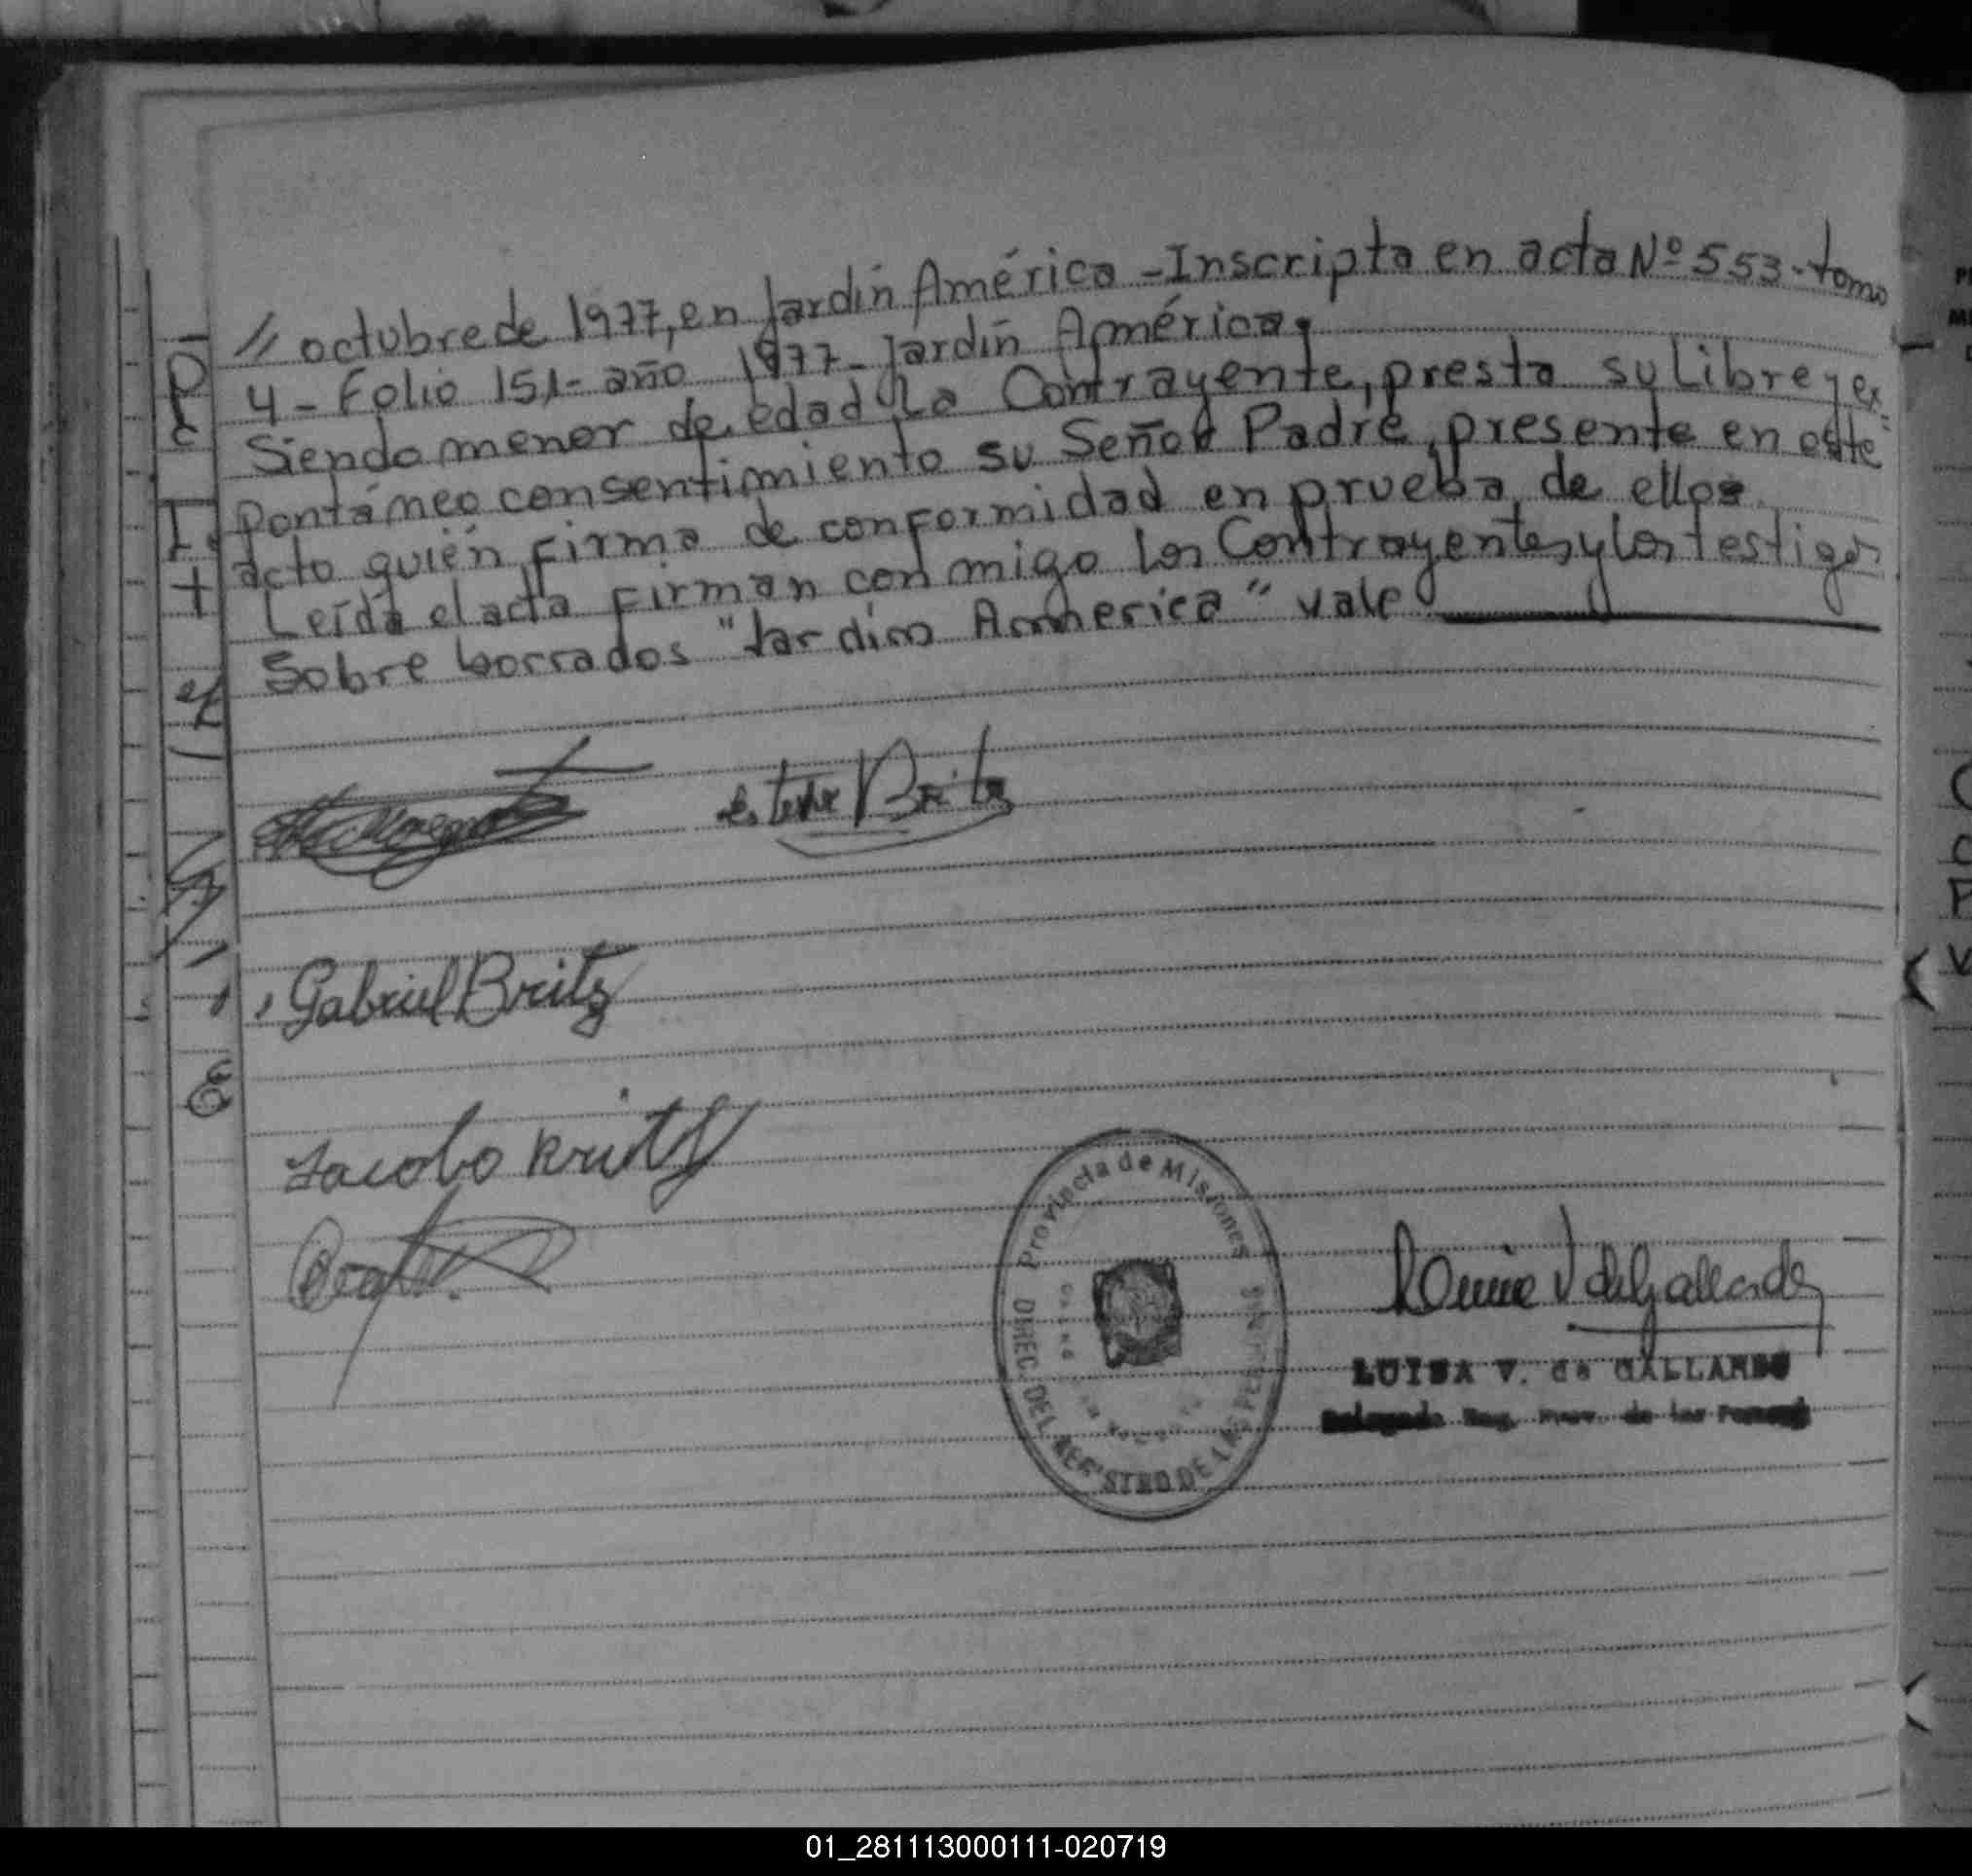 // octubre de 1977, en Jardín América - Inscripta en acta Nº 553 - tomo
4 - Folio 151 - año 1977 - Jardín América.
Siendo menor de edad la Contrayente, presta su Libre y ex-
pontáneo consentimiento su Señor Padre, presente en este
acto quién firma de conformidad en prueba de ello
Leída el acta firman con migo los Contrayentes, y los testigos
Sobre borrados "Jardin America" vale
Britz
Gabriel Britz
Jacobo Britz
Provincia de Misiones
DIREC. DEL REGISTRO DE LAS PERSONAS
V de Gallardo
LUISA V. de GALLARDO
01_281113000111-020719